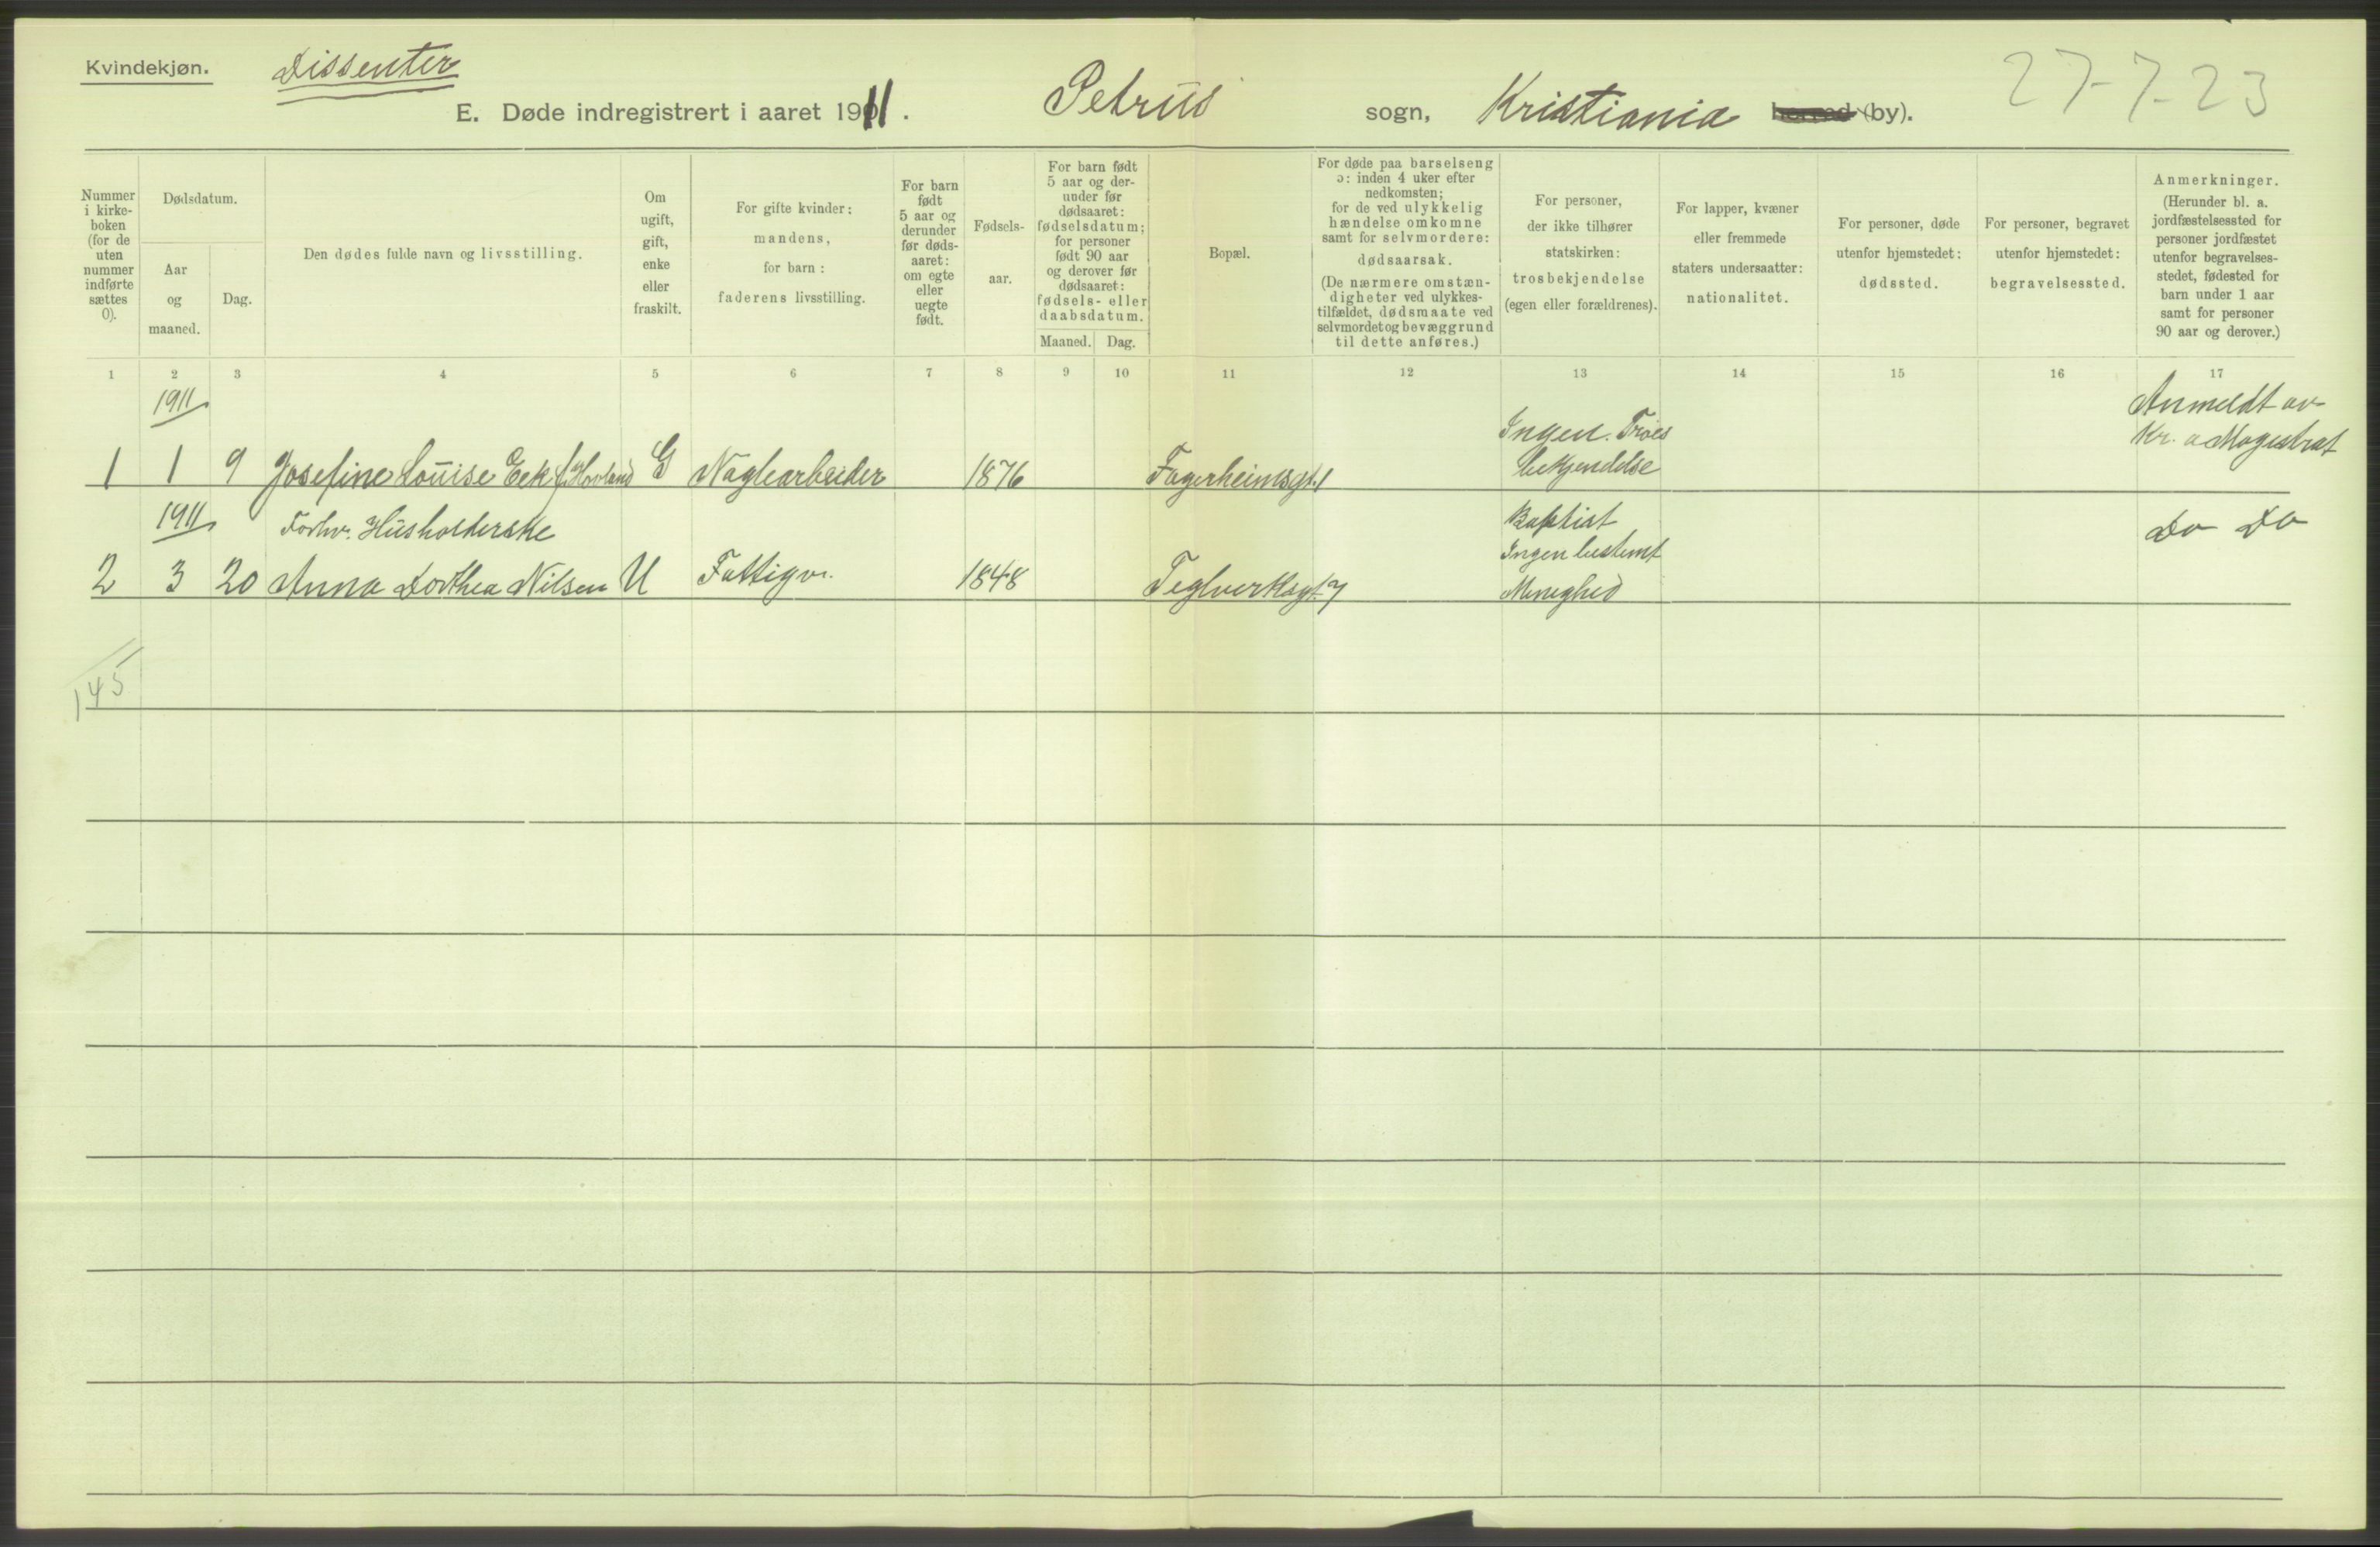 Kvindekjøn.
Dissenter
E. Døde indregistrert i aaret 1911.
Petrus sogn, Kristiania herred (by).
27-7-23
Nummer i kirke-boken (for de uten nummer indførte sættes 0).
Dødsdatum.
Aar og maaned.
Dag.
Den dødes fulde navn og livsstilling.
Om ugift, gift, enke eller fraskilt.
For gifte kvinder: mandens, for barn: faderens livsstilling.
For barn født 5 aar og derunder før døds-aaret: om egte eller uegte født.
Fødsels-aar.
For barn født 5 aar og der-under før dødsaaret: fødselsdatum; for personer født 90 aar og derover før dødsaaret: fødsels- eller daabsdatum.
Maaned.
Dag.
Bopæl.
For døde paa barselseng ɔ: inden 4 uker efter nedkomsten; for de ved ulykkelig hændelse omkomne samt for selvmordere: dødsaarsak. (De nærmere omstæn-digheter ved ulykkes-tilfældet, dødsmaate ved selvmordet og bevæggrund til dette anføres.)
For personer, der ikke tilhører statskirken: trosbekjendelse (egen eller forældrenes).
For lapper, kvæner eller fremmede staters undersaatter: nationalitet.
For personer, døde utenfor hjemstedet: dødssted.
For personer, begravet utenfor hjemstedet: begravelsessted.
Anmerkninger. (Herunder bl. a. jordfæstelsessted for personer jordfæstet utenfor begravelses-stedet, fødested for barn under 1 aar samt for personer 90 aar og derover.)
1 2 3 4 5 6 7 8 9 10 11 12 13 14 15 16 17
1911
Anmeldt av
Ingen. Troes
Kr. a Magistrat
1 1 9 Josefine Louise Eek f. Hovland G Naglearbeider 1876 Fagerheimsgt. 1 bekjendelse
1911 Forhv. Husholderske Baptist Do Do
Ingen bestemt
2 3 20 Anna Dorthea Nilsen U Fattigv. 1848 Teglverksgt. 7 Menighed
145